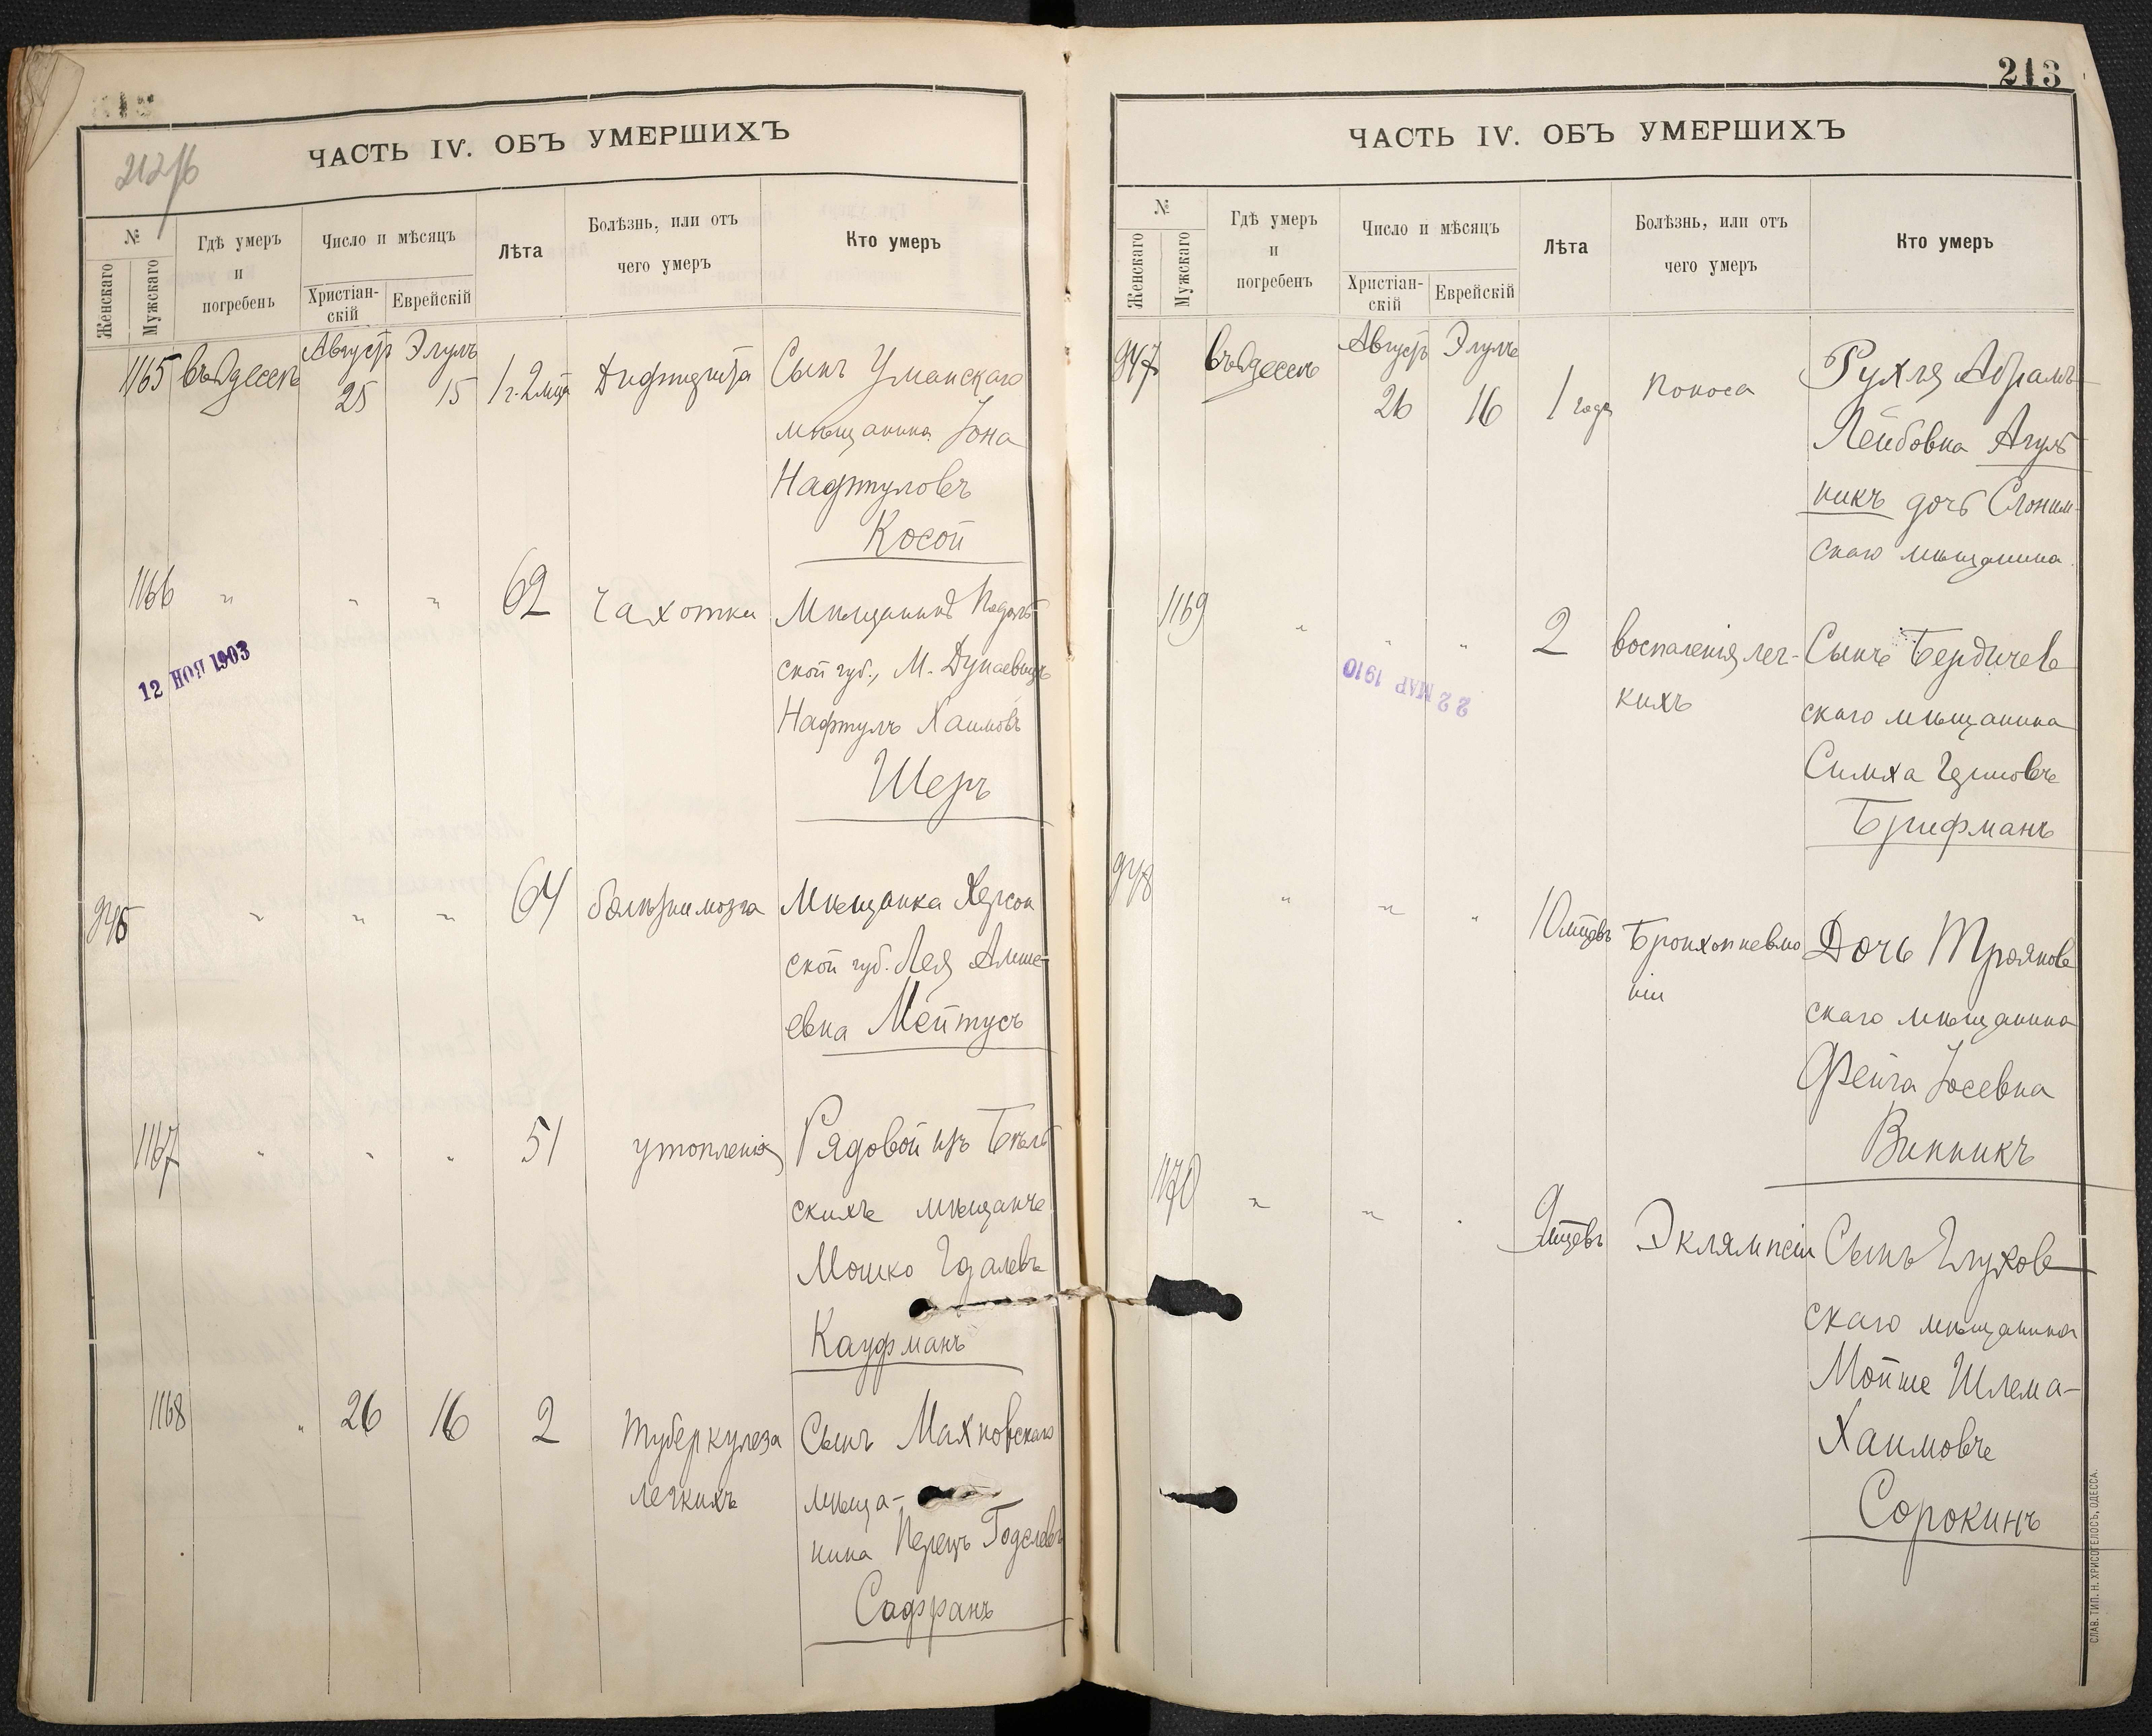 ЧАСТЬ IV. ОБЪ УМЕРШИХЪ
№
Женскаго
Мужскаго
Гдѣ умеръ
и
погребенъ
Число и мѣсяцъ
Христіан-
скій
Еврейскій
Лѣта
Болѣзнь, или отъ
чего умеръ
Кто умеръ
1165 въ Одессѣ Августъ 25 Элулъ 15 1 г. 2 мца Дифтерита Сынъ Уманскаго
мѣщанина Іона
Нафтуловъ
Косой
1166 " " " 62 Чахотки Мѣщанинъ Подоль
ской губ., М. Дунаевецъ
Нафтулъ Хаимовъ
Шеръ
12 НОЯ 1903
946 " " " 64 болѣзни мозга Мѣщанка Херсон
ской губ. Лея
евна Мейтусъ
1167 " " " 51 утопленія Рядовой изъ Бѣль
скихъ мѣщанъ
Мошко Гдалевъ
Кауфманъ
1168 " 26 16 2 туберкулеза Сынъ Махновскаго
легкихъ мѣща-
нина Перецъ Годелевъ
Сафранъ
213
ЧАСТЬ IV. ОБЪ УМЕРШИХЪ
№
Женскаго
Мужскаго
Гдѣ умеръ
и
погребенъ
Число и мѣсяцъ
Христіан-
скій
Еврейскій
Лѣта
Болѣзнь, или отъ
чего умеръ
Кто умеръ
947 въ Одессѣ Августъ 26 Элулъ 16 1 годъ поноса Рухля Абрамъ-
Лейбовна Агуль
никъ дочь Слоним-
скаго мѣщанина.
1169 " " " 2 воспаленія лег- Сынъ Бердичев
кихъ скаго мѣщанина
Симха
Брифманъ
22 МАР 1910
948 " " " 10 мцевъ Бронхопневмо Дочь Трояновъ
ніи скаго мѣщанина
Фейга Іосевна
Винникъ
1170 " " " 9 мцевъ Эклямпсіи Сынъ Глухов
скаго мѣщанина
Мойше Шлема-
Хаимовъ
Сорокинъ
СЛАВ. ТИП. Н. ХРИСОГЕЛОСЪ, ОДЕССА.